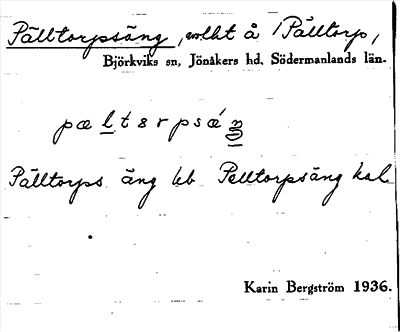 Pälltorpsäng, vid å Pälltorp,
Björkviks sn, Jönåkers hd, Södermanlands län.
pæltorpsæ´ŋ
Pälltorps äng lb Pelltorpsäng kal
Karin Bergström 1936.